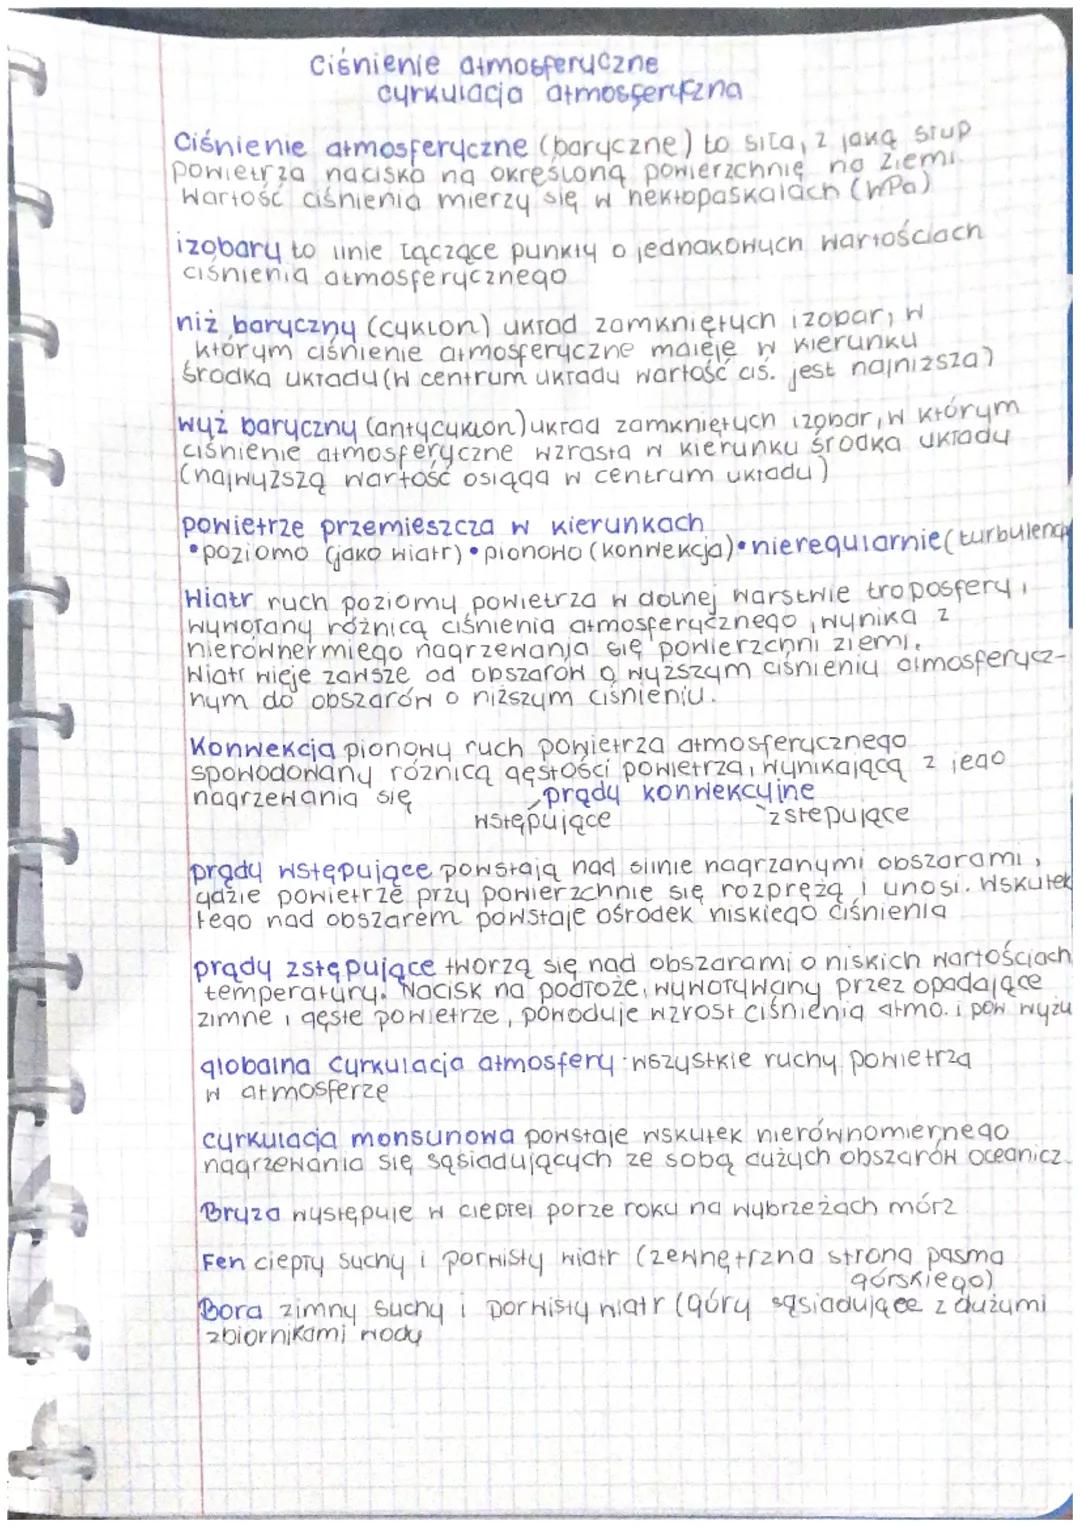 Ciśnienie atmosferyczne
cyrkulacja atmosferyczna
Ciśnienie atmosferyczne (baryczne) to siła, z jaką słup
powietrza naciska na określoną powierzchnię na Ziemi
Wartość ciśnienia mierzy się w hektopaskalach (hPa)
izobary to linie łączące punkty o jednakowych wartościach
ciśnienia atmosferycznego
niż baryczny (cyklon) układ zamkniętych izobar, w
którym ciśnienie atmosferyczne maleje w kierunku
środka układu (w centrum układu wartość ciś. jest najniższa)
wyż baryczny (antycyklon) układ zamkniętych izobar, w którym
ciśnienie atmosferyczne wzrasta w kierunku środka układu
(najwyższą wartość osiąga w centrum układu)
powietrze przemieszcza w kierunkach
•poziomo (jako wiatr) •pionowo (konwekcja) •nieregularnie (turbulencja
Wiatr ruch poziomy powietrza w dolnej warstwie troposfery,
wywołany różnicą ciśnienia atmosferycznego, wynika z
nierównermiego nagrzewania się powierzchni ziemi.
Wiatr wieje zawsze od obszarów o wyższym ciśnieniu atmosferycz-
nym do obszarów o niższym ciśnieniu.
Konwekcja pionowy ruch powietrza atmosferycznego
spowodowany różnicą gęstości powietrza, wynikającą z jego
nagrzewania się
prądy konwekcyjne
wstępujące zstępujące
prądy wstępujące powstają nad silnie nagrzanymi obszarami,
gdzie powietrze przy powierzchnie się rozpręża i unosi. Wskutek
tego nad obszarem powstaje ośrodek niskiego ciśnienia
prądy zstępujące tworzą się nad obszarami o niskich wartościach
temperatury. Nacisk na podłoże, wywoływany przez opadające
zimne i gęste powietrze, powoduje wzrost ciśnienia atmo. i pow wyżu
globalna cyrkulacja atmosfery wszystkie ruchy powietrza
w atmosferze
cyrkulacja monsunowa powstaje wskutek nierównomiernego
nagrzewania się sąsiadujących ze sobą dużych obszarów oceanicz.
Bryza występuje w ciepłej porze roku na wybrzeżach mórz
Fen ciepły suchy i porwisty wiatr (zewnętrzna strona pasma
górskiego)
Bora zimny suchy i porwisty wiatr (góry sąsiadujące z dużymi
zbiornikami wody